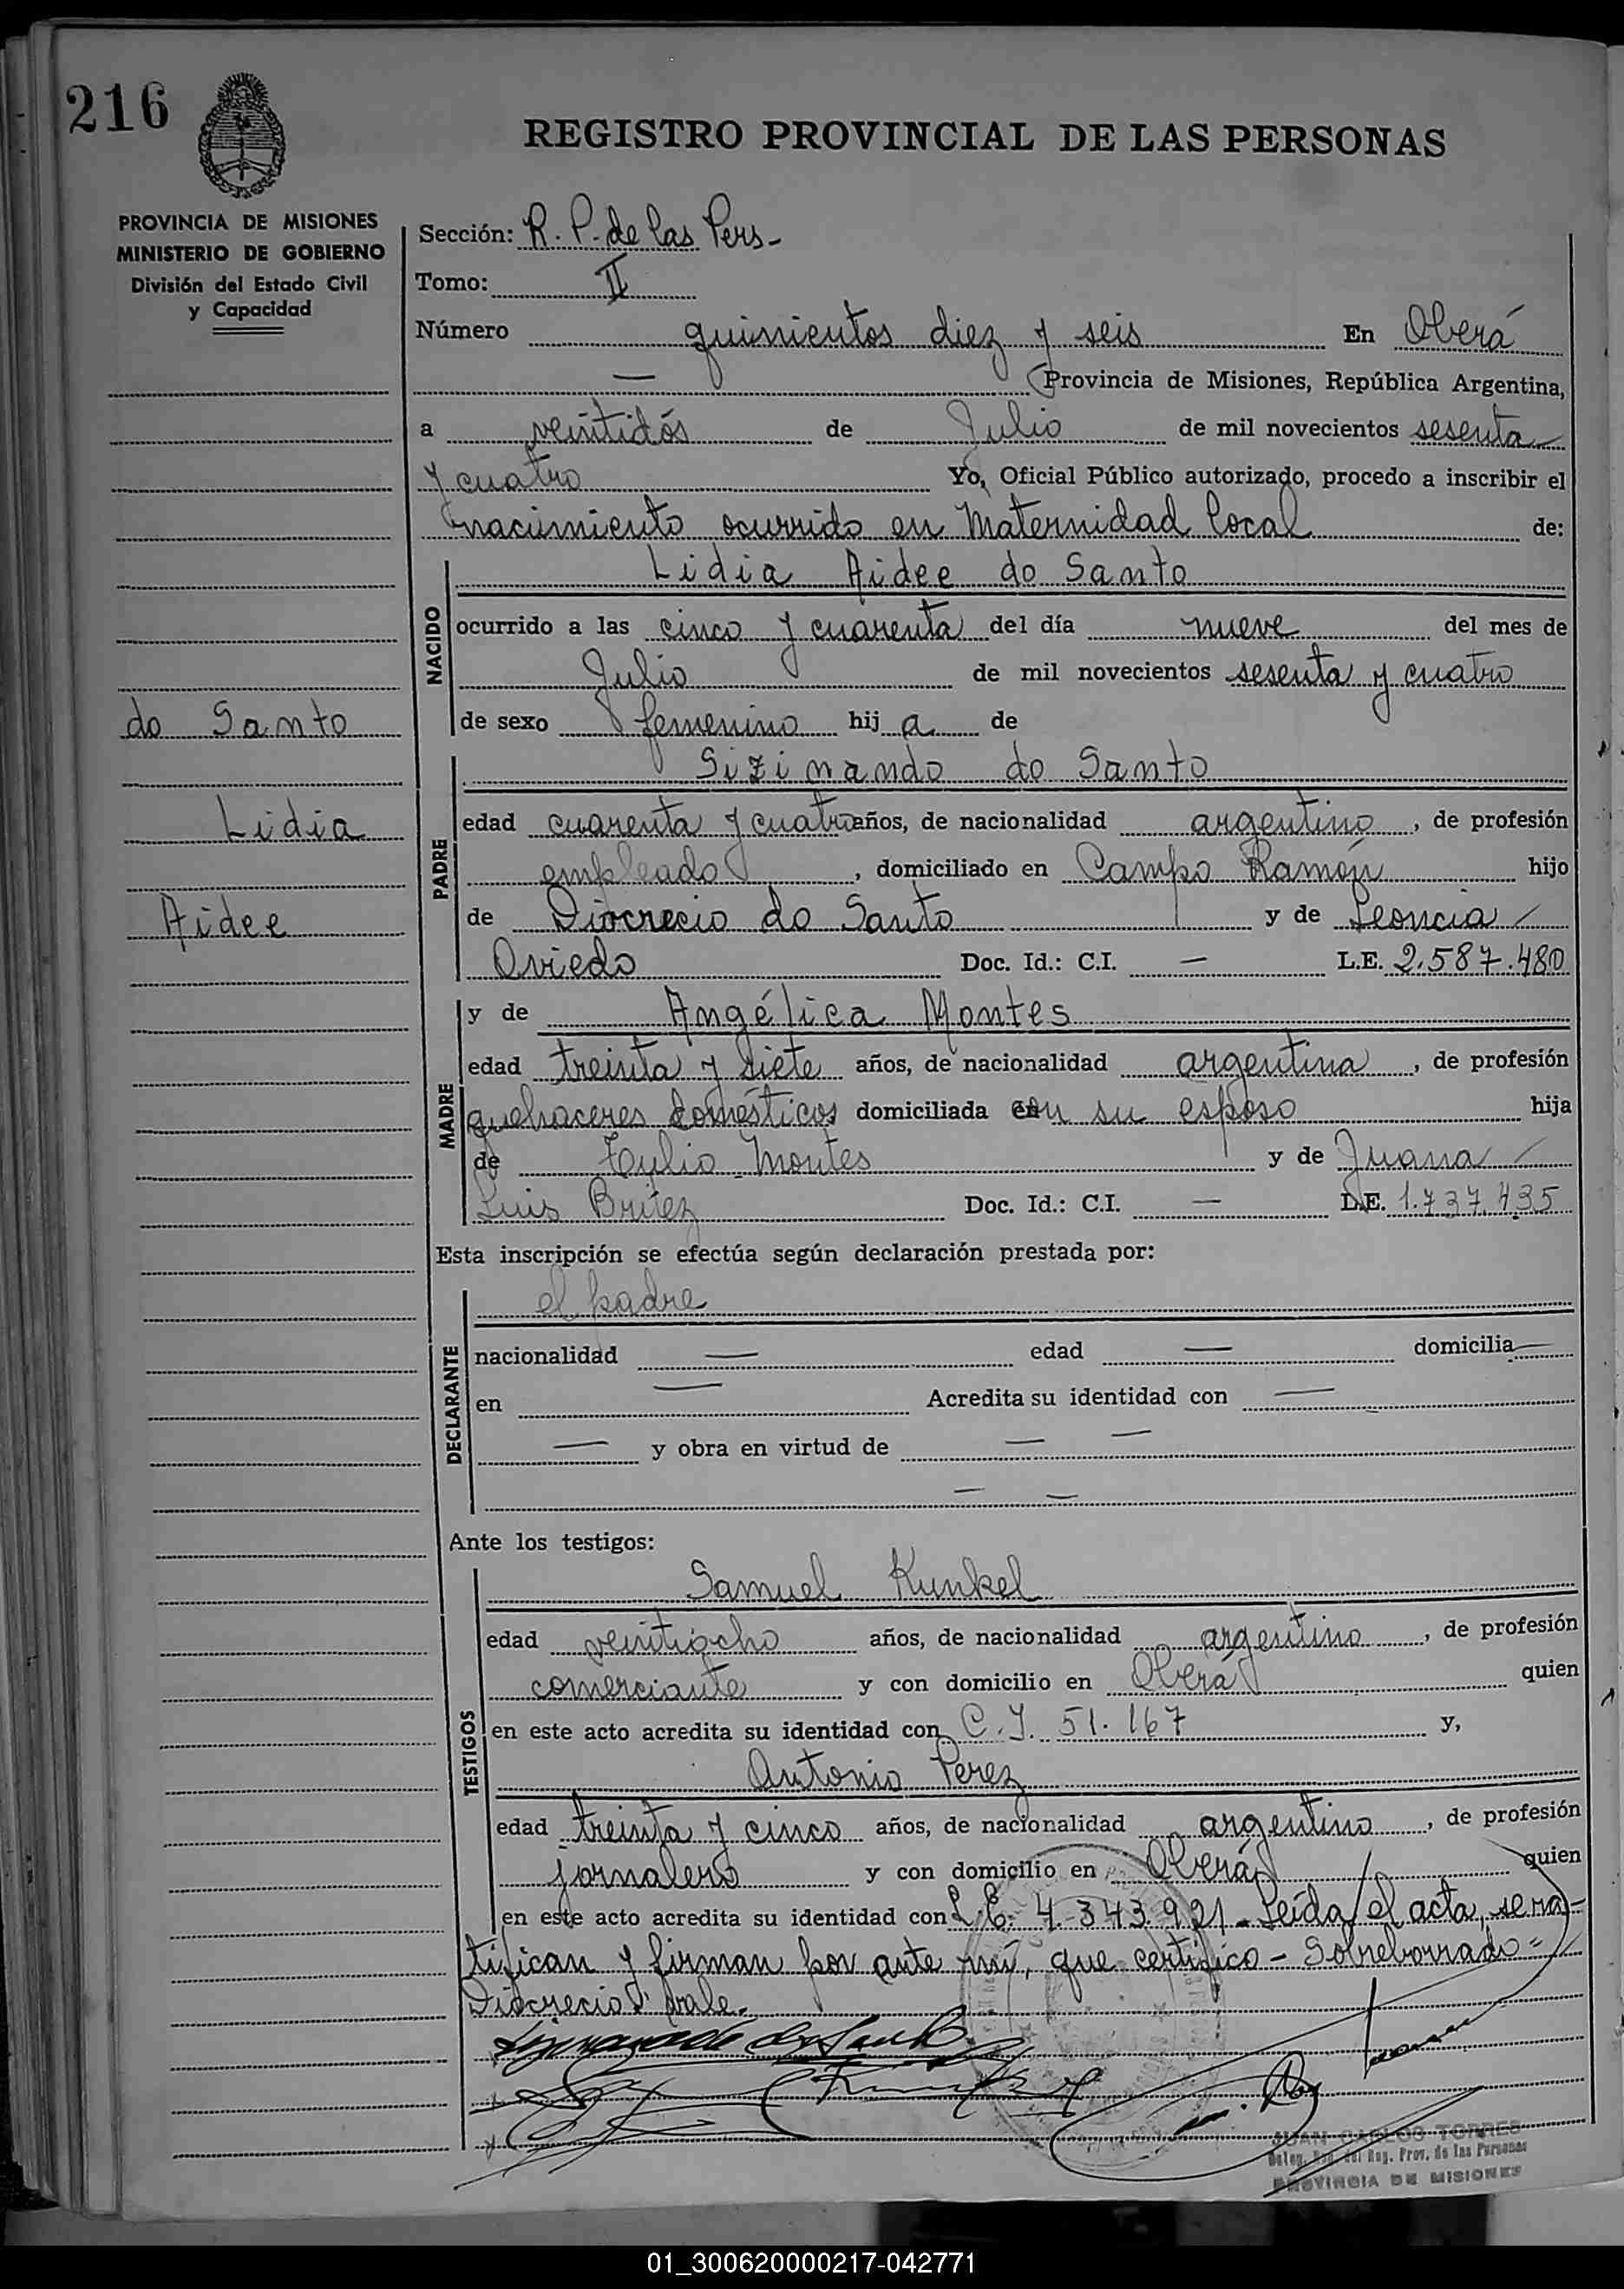 216
REGISTRO PROVINCIAL DE LAS PERSONAS
PROVINCIA DE MISIONES
MINISTERIO DE GOBIERNO
División del Estado Civil
y Capacidad
Sección: R. P. de las Pers-
Tomo: II
Número quinientos diez y seis En Oberá
— (Provincia de Misiones, República Argentina,
a veintidós de Julio de mil novecientos sesenta
y cuatro Yo, Oficial Público autorizado, procedo a inscribir el
nacimiento ocurrido en Maternidad local de:
Lidia Aidee do Santo
NACIDO
ocurrido a las cinco y cuarenta del día nueve del mes de
Julio de mil novecientos sesenta y cuatro
de sexo femenino hij a de
do Santo
Lidia
Aidee
Sizinando do Santo
PADRE
edad cuarenta y cuatro años, de nacionalidad argentino, de profesión
empleado, domiciliado en Campo Ramón hijo
de Diocrecio do Santo y de Leoncia
Oviedo Doc. Id.: C.I. — L.E. 2.587.480
y de Angélica Montes
MADRE
edad treinta y siete años, de nacionalidad argentina, de profesión
quehaceres domésticos domiciliada con su esposo hija
de Montes y de Juana
Luis Britez Doc. Id.: C.I. — L.E. 1.737.435
Esta inscripción se efectúa según declaración prestada por:
el padre
DECLARANTE
nacionalidad — edad — domicilia —
en — Acredita su identidad con —
— y obra en virtud de — —
— —
Ante los testigos:
Samuel Kunkel
TESTIGOS
edad veintiocho años, de nacionalidad argentino, de profesión
comerciante y con domicilio en Oberá quien
en este acto acredita su identidad con C.I. 51.167 y,
Antonio Perez
edad treinta y cinco años, de nacionalidad argentino, de profesión
jornalero y con domicilio en Oberá quien
en este acto acredita su identidad con L.E. 4.343.921- Leída el acta, se ra-
tifican y firman por ante mí, que certifico - Sobreborrado =
Diocrecio: vale.
JUAN CARLOS TORRES
Reg. Prov. de las Personas
PROVINCIA DE MISIONES
01_300620000217-042771